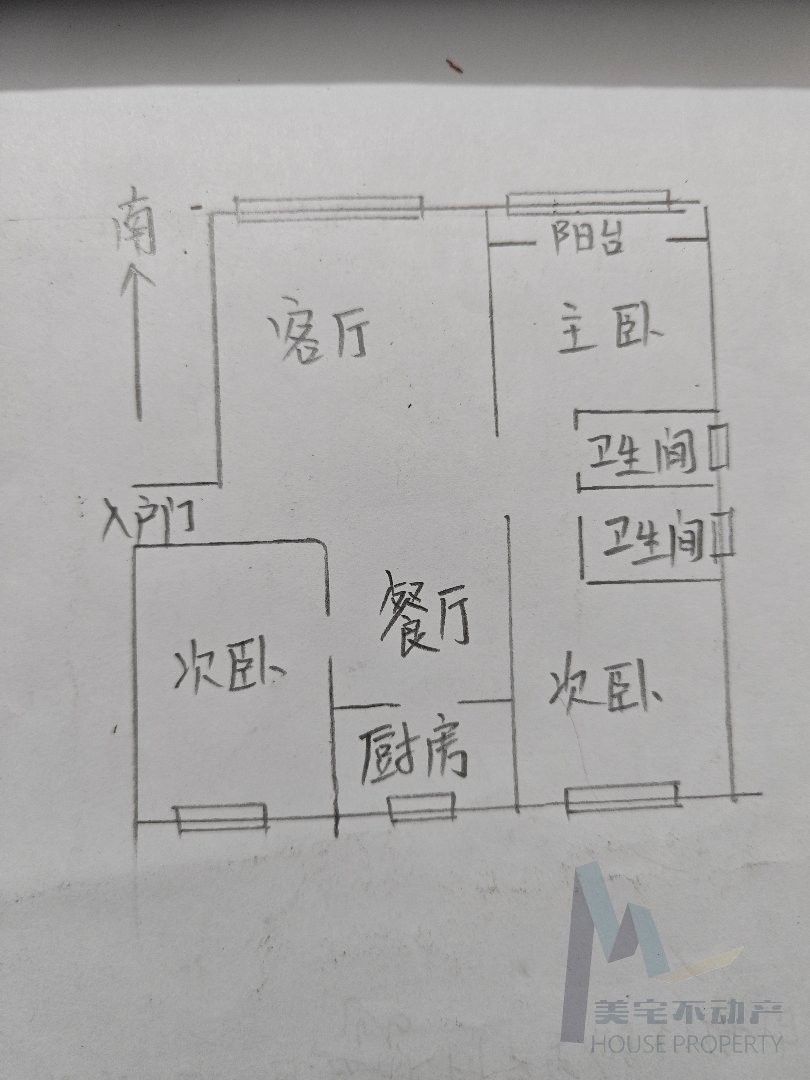 南
阳台
客厅
主卧
卫生间
入户门
卫生间
餐厅
次卧
次卧
厨房
美宅不动产
HOUSE PROPERTY